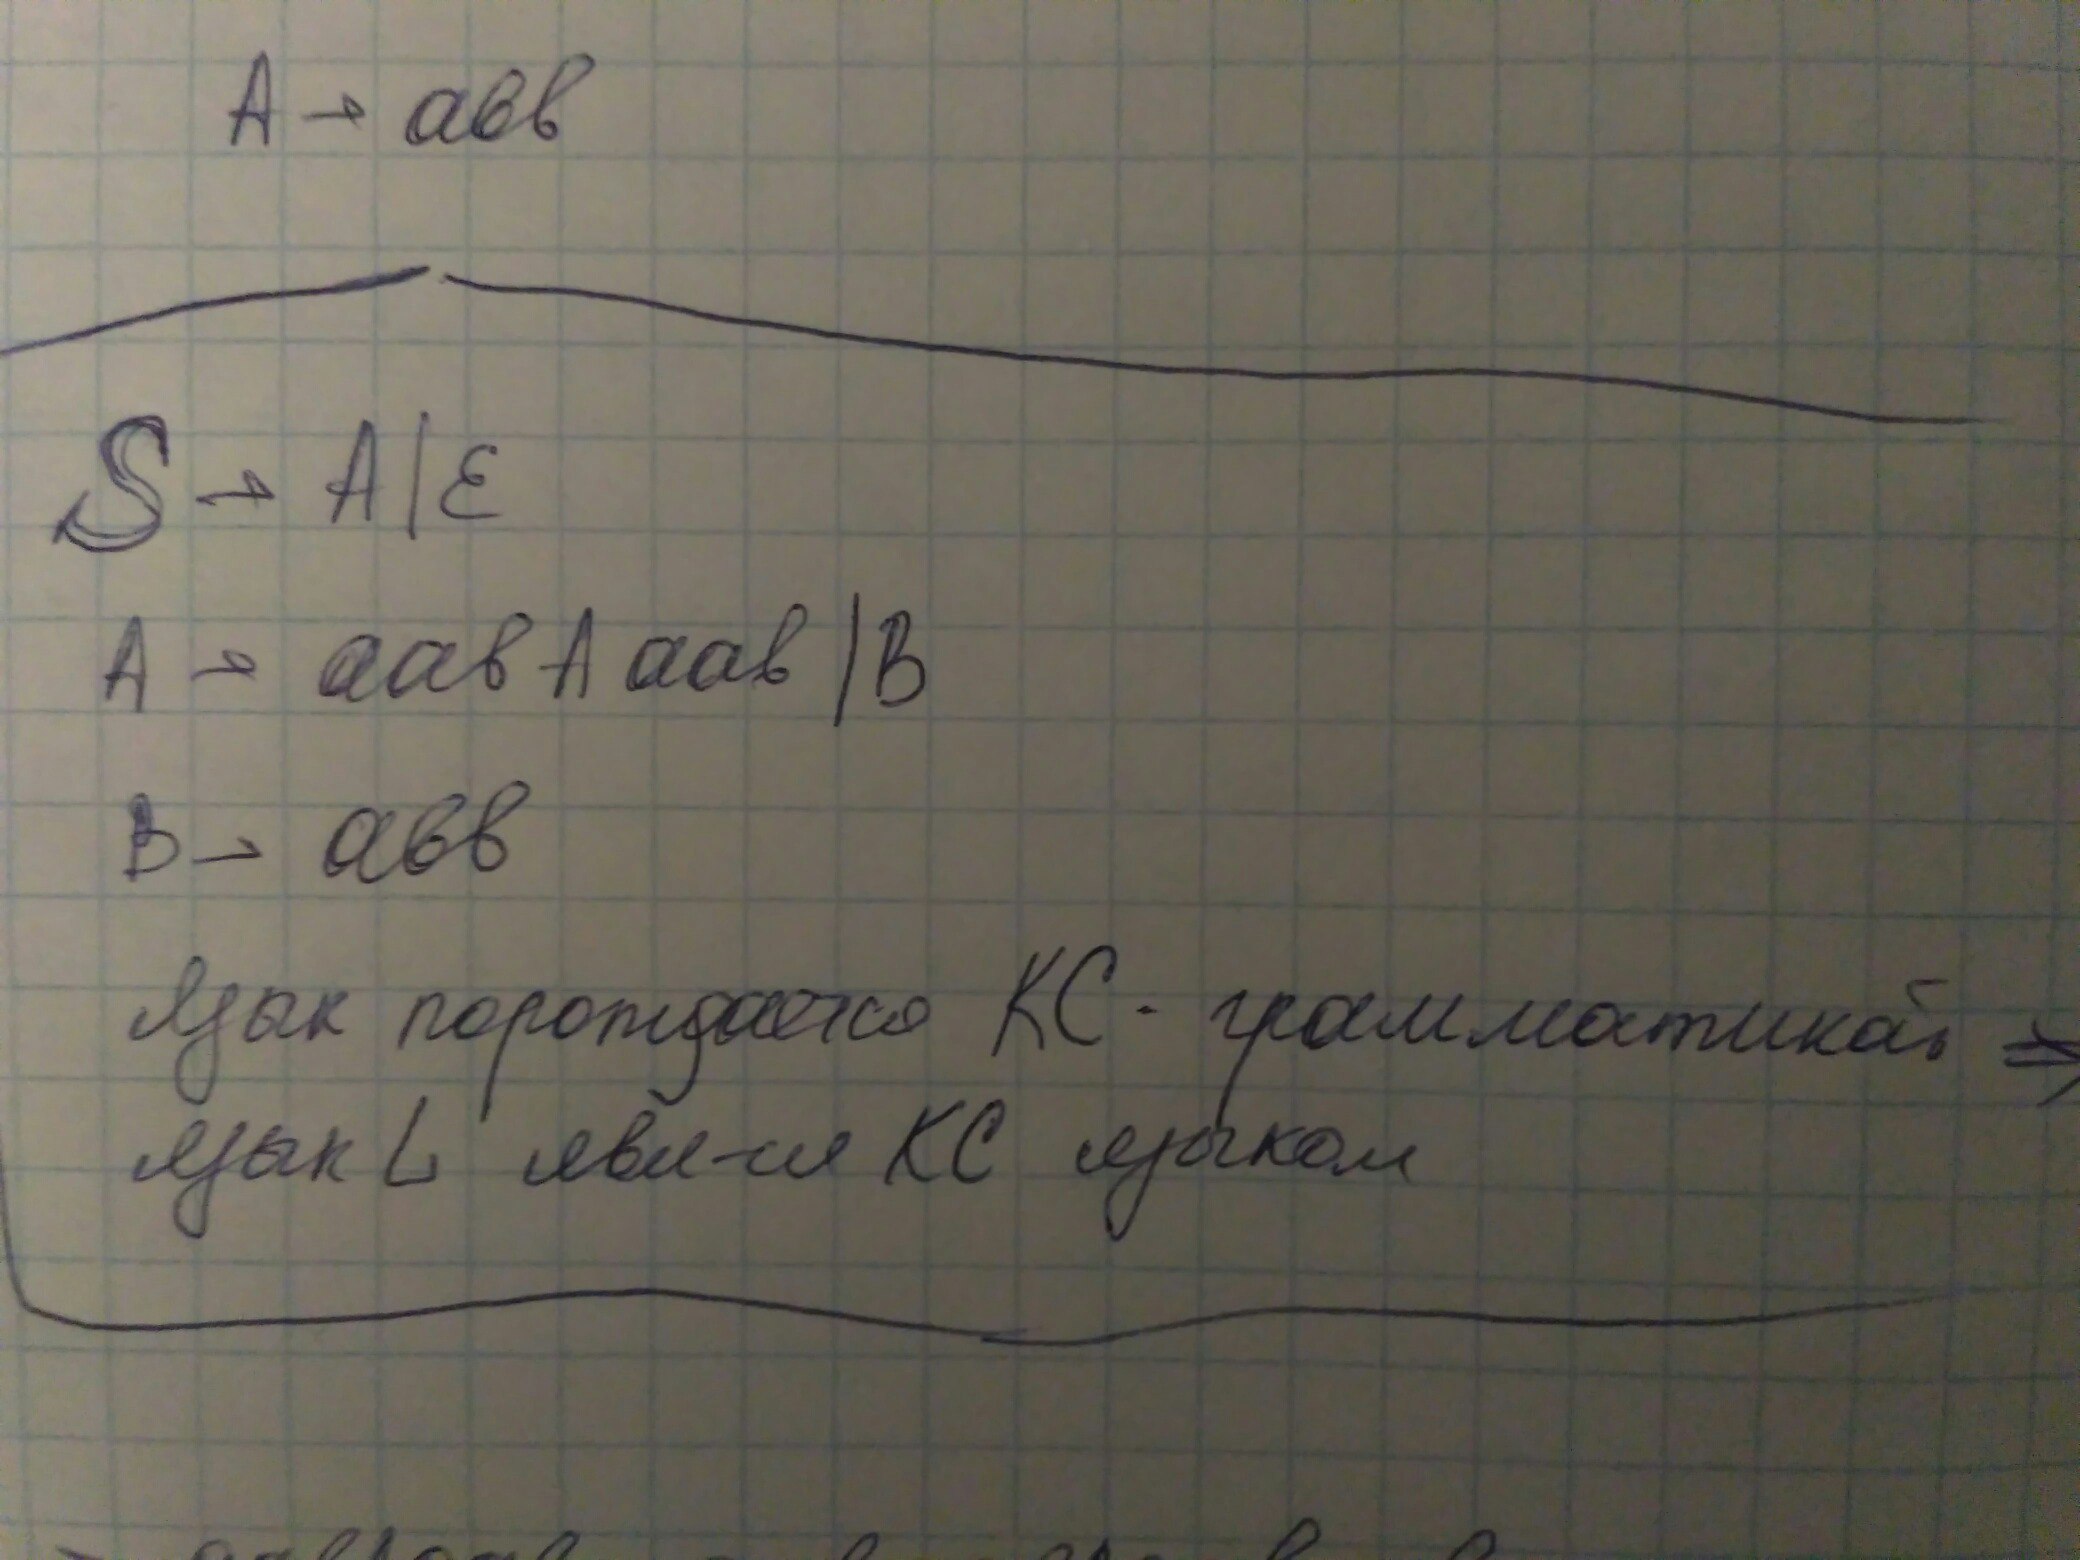 A → авв
S → A | ε
A → аав A аав | B
B → авв
Язык порождается КС-грамматикой ⇒
язык L явл-ся КС языком